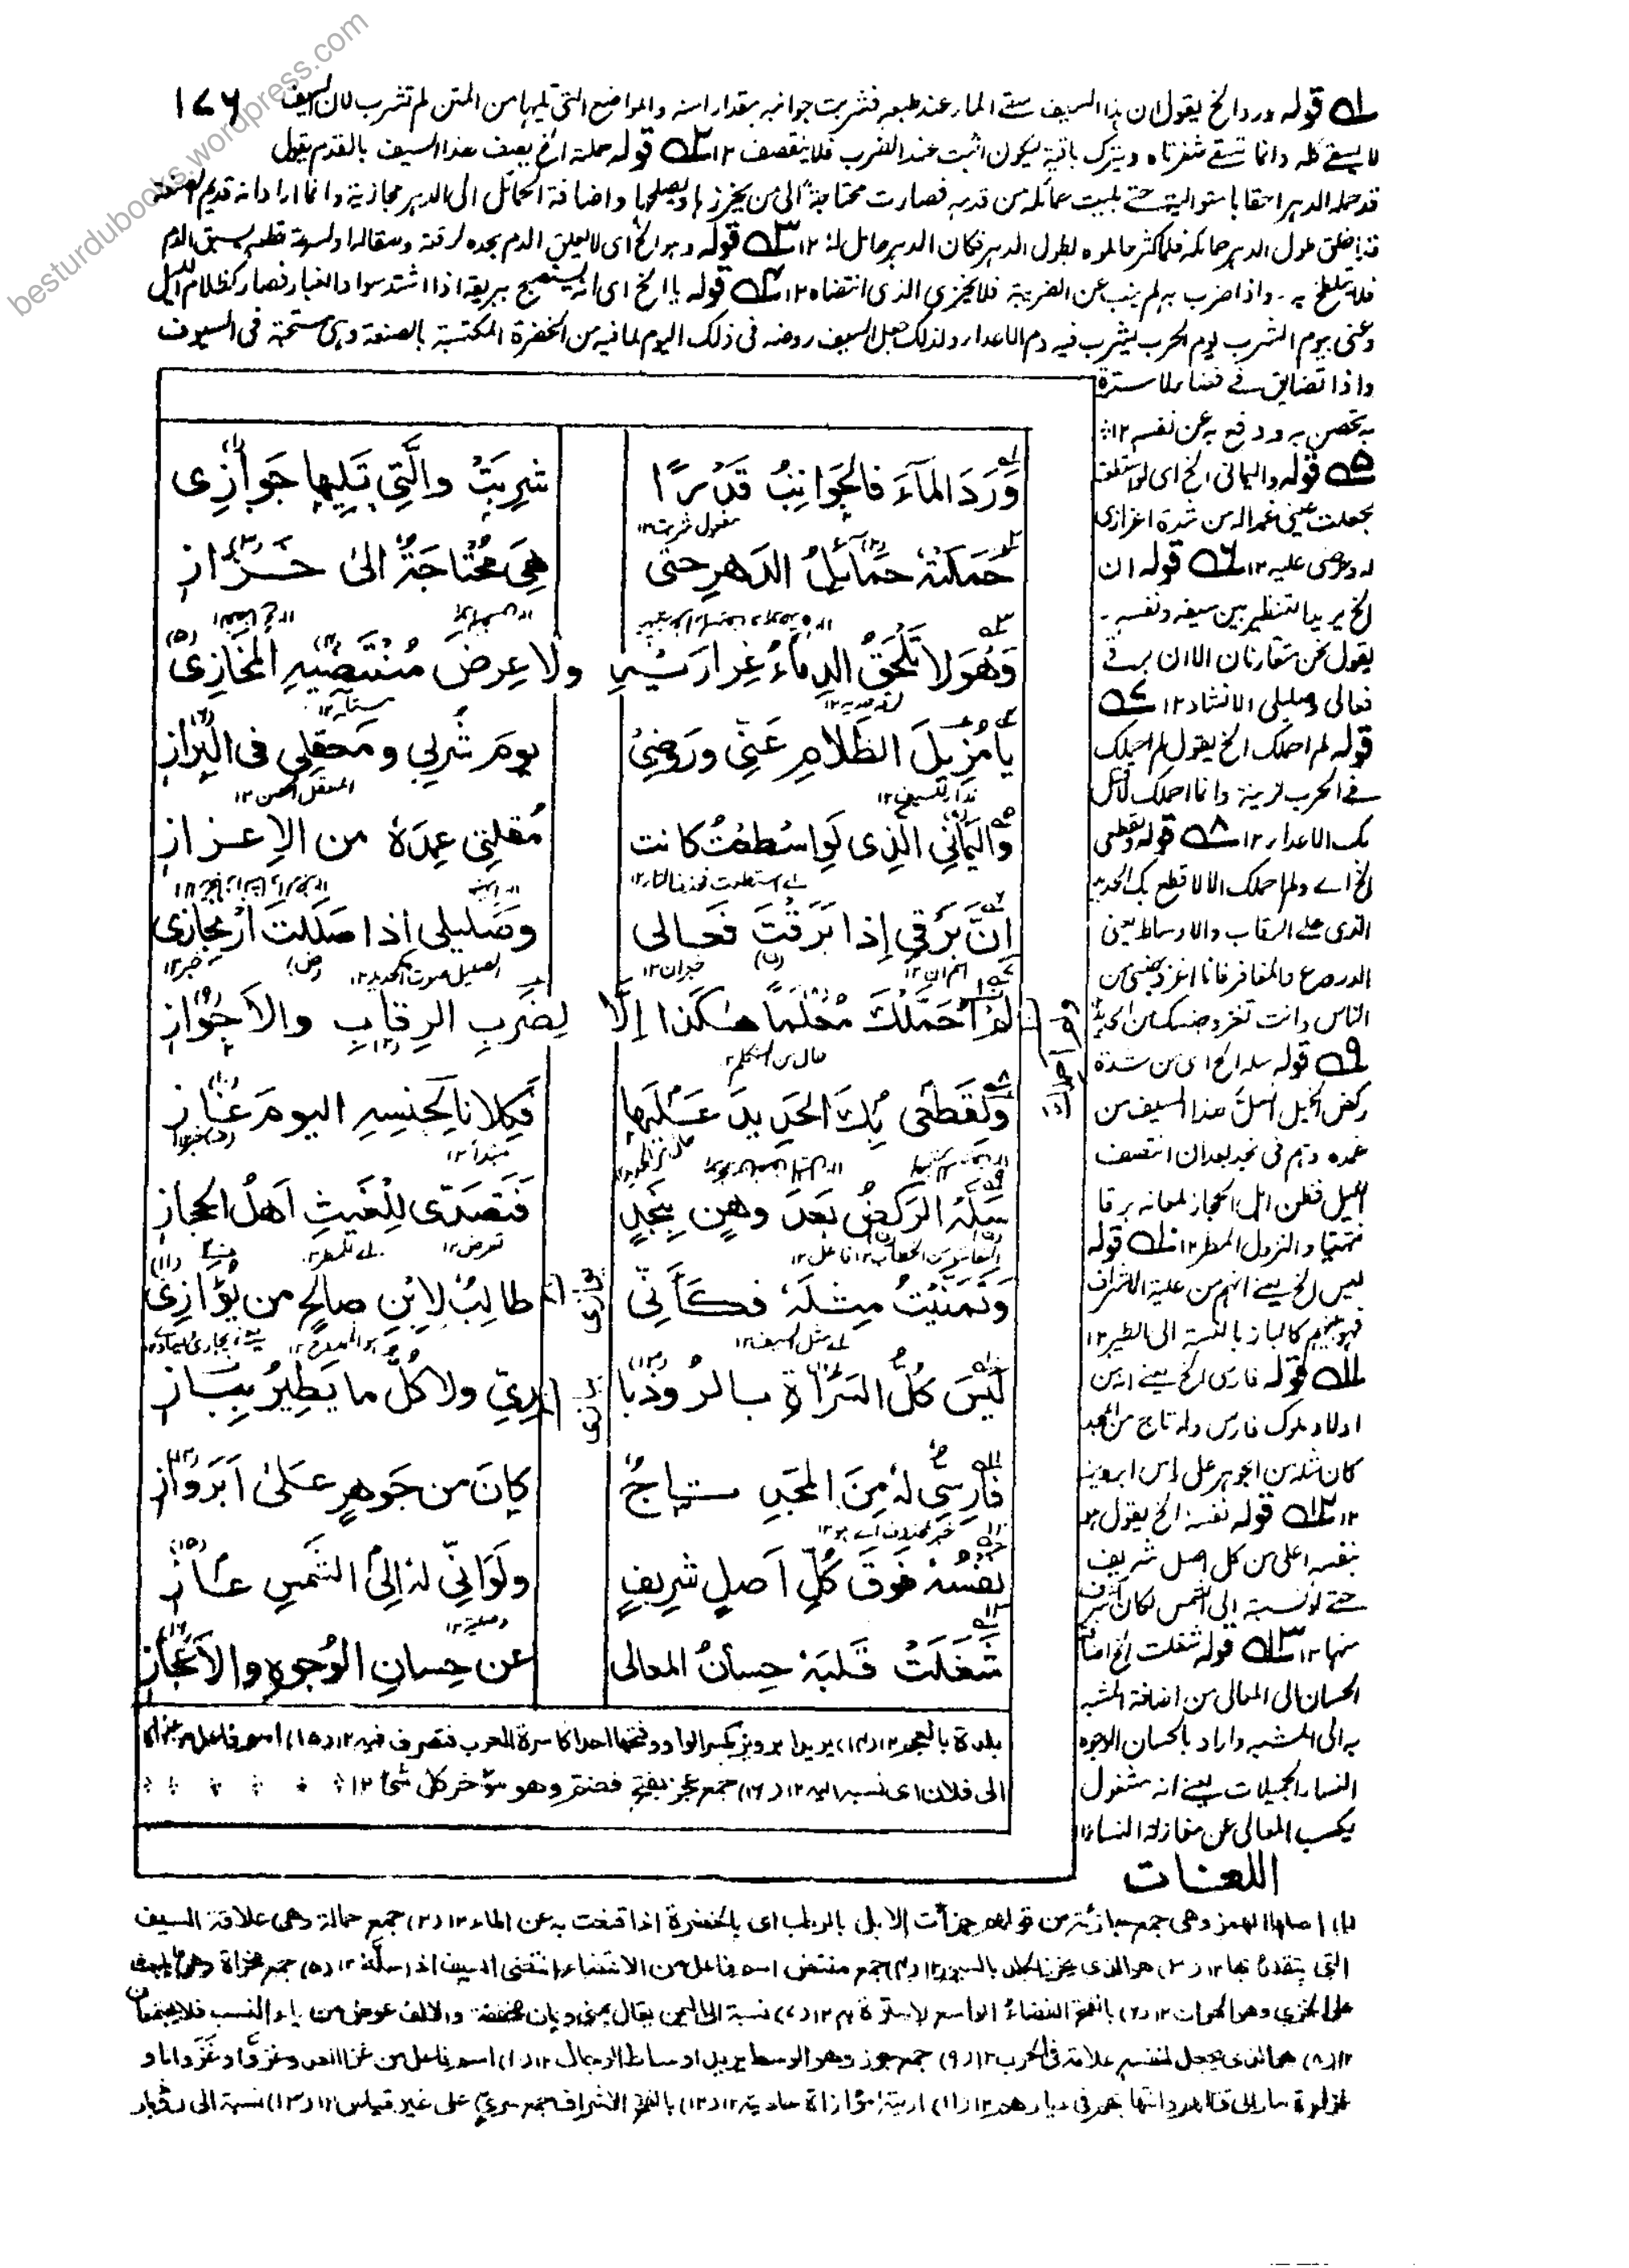 besturdubooks.wordpress.com
۱۷۶
۱ قوله ورد الخ يقول ان هذا السيف سقى الماء عند طبعه فشربت جوانبه بقدر امنه والمواضع التى تليها من المتن لم تشرب لان السيف
لا يسقى كله وانما تسقى شفرتاه ويترك باقيه ليكون اثبت عند الضرب فلا ينقصف ١٢ ۲ قوله حملته الخ يصف هذا السيف بالقدم يقول
قد حمله الدهر احقابا متوالية حتى بليت حمائله من قدمه فصارت محتاجة الى من يخرزها ويصلحها واضافة الحمائل الى الدهر مجازية وانما اراد انه قديم الصنعة
قد اخلق طول الدهر حمائله فلما كثر حاملوه لطول الدهر فكان الدهر حامل له ١٢ ۳ قوله وهو الخ اى لا يعلق الدم بحده لرقته وصقاله ولسرعة قطعه يسبق الدم
فلا يتلطخ به ۔ واذا ضرب به لم ينب عن الضريبة فلا يخزى الذى انتضاه ١٢ ۴ قوله يا الخ اى انه يستصبح ببريقه اذا اشتد سواد الغبار فصار كظلام الليل
وعنى بيوم الشرب يوم الحرب يشرب فيه دم الاعداء ولذلك جعل السيف روضه فى ذلك اليوم لما فيه من الخضرة المكتسبة بالصنعة وهى مستحسنة فى السيوف
واذا تضايق فى فضاء لا سترة
به تحصن به ودفع به عن نفسه ١٢
۵ قوله واليمانى الخ اى لو استطعت
لجعلت عينى غمدا له من شدة اعزازى
له وحرصى عليه ١٢ ۶ قوله ان
الخ يريد التنظير بين سيفه ونفسه ۔
يقول نحن متقارنان الا ان برقى
فعالى وصليلى الانشاد ١٢ ۷
قوله لم احملك الخ يقول لم احملك
فى الحرب لزينة وانما احملك لاقتل
بك الاعداء ١٢ ۸ قوله ولقطعى
الخ اى ولم احملك الا لاقطع بك الحديد
الذى على الرقاب والاوساط يعنى
الدروع والمغافر فانا اغزو جنسى من
الناس وانت تغزو جنسك من الحديد
۹ قوله سله الخ اى من شدة
ركض الخيل انسل هذا السيف من
غمده وهم فى نجد بعد ان انتصف
الليل فظن اهل الحجاز لمعانه برقا
فتهيأوا لنزول المطر ١٢ ۱۰ قوله
ليس الخ يعنى انهم من علية الاشراف
فهو بينهم كالباز بالنسبة الى الطير ١٢
۱۱ قوله فارسى الخ يعنى انه من
اولاد ملوك فارس وله تاج من المجد
كان مثله من الجوهر على راس ابرويز
١٢ ۱۲ قوله نفسه الخ يقول هو
بنفسه اعلى من كل اصل شريف
حتى لو نسبته الى الشمس لكان اشرف
منها ١٢ ۱۳ قوله شغلت الخ اضافة
الحسان الى المعالى من اضافة المشبه
به الى المشبه واراد بالحسان الوجوه
النساء الجميلات يعنى انه مشغول
بكسب المعالى عن مغازلة النساء ١٢
وَرَدَ المَآءَ فالجَوَانِبُ قَدْرًا شَرِبَتْ والَّتِي تَلِيها جَوازِى
مفعول شربت ١٢
حَمَلَتْهُ حَمائِلُ الدَهرِ حتى هِىَ مُحْتاجَةٌ الى خَرَّازِ
وَهُوَ لا تَلْحَقُ الدِماءُ غِرارَيْهِ ولا عِرضَ مُنْتَضِيهِ المَخازِىْ
يا مُزِيلَ الظَلامِ عَنِّى ورَوضِىْ يومَ شُربِي ومَعقِلِى فى البَرازِ
نداء للسيف ١٢ المعقل الحصن ١٢
واليَمانِي الَّذِى لَوِ اسْطَعْتُ كانت مُقلَتِى غِمدَهُ من الإِعزازِ
اِنَّ بَرْقِى إذا بَرَقْتَ فَعالى وصَليلى إذا صَلَلْتَ ارْتِجازى
اسم ان ١٢ خبر ان ١٢ الصليل صوت الحديد ١٢ خبر ١٢
لَمْ اُحَمِّلْكَ مُعْلَمًا هٰكَذا إلَّا لِضَربِ الرِقابِ والاَجْوازِ
حال من المتكلم ١٢
ولِقَطْعى بِكَ الحَدِيدَ عَلَيْها فَكِلانا لِجِنسِهِ اليومَ غازِ
مبتدأ ١٢
سَلَّهُ الرَكضُ بَعدَ وَهنٍ بِنَجدٍ فَتَصَدَّى لِلْغَيثِ اَهلُ الحِجازِ
تعرض ١٢ اى للمطر ١٢
وَتَمَنَّيْتُ مِثلَهٗ فكَأَنِّى طالِبٌ لِابْنِ صالِحٍ من يُؤازِىْ
اى مثل السيف ١٢
لَيْسَ كُلُّ السَراةِ بالرُوذَبا رِيِّ ولا كُلُّ ما يَطِيرُ بِبازِ
فارِسِىٌّ لهٗ مِنَ المَجدِ تاجٌ كانَ من جَوهرٍ عَلىٰ اَبَرْوازِ
خبر لمحذوف اى هو ١٢
نفسُهٗ فَوقَ كُلِّ اَصلٍ شَرِيفٍ ولَوَ انِّى لهٗ اِلىَ الشَمسِ عازِ
شَغَلَتْ قَلبَهٗ حِسانُ المعالى عن حِسانِ الوُجوهِ والاَعْجازِ
بلدة بالعجم ١٢ (١٤) يريد ابرويز بكسر الواو وفتحها احد اكاسرة العرب فتصرف فيه ١٢ (١٥) اسم فاعل من عزاه
الى فلان اى نسبه اليه ١٢ (١٦) جمع عجز بفتح فضم وهو مؤخر كل شئ ١٢
اللغات
(١) اصلها الهمز وهى جمع جازئة من قولهم جزأت الابل بالرطب اى بالخضرة اذا قنعت به عن الماء ١٢ (٢) جمع حمالة وهى علاقة السيف
التى يتقلد بها ١٢ (٣) هو الذى يخرز الجلد بالسير ١٢ (٤) جمع منتض اسم فاعل من الانتضاء انتضى السيف اذا سلّه ١٢ (٥) جمع مخزاة وهى ما يبعث
على الخزى وهو الهوان ١٢ (٦) بالفتح الفضاء الواسع لا سترة به ١٢ (٧) نسبة الى اليمن يقال يمنى ويمان مخففة والالف عوض من ياء النسب فلا يجتمعان
١٢ (٨) هو الذى يجعل لنفسه علامة فى الحرب ١٢ (٩) جمع جوز وهو الوسط يريد اوساط الرجال ١٢ (١٠) اسم فاعل من غزا العدو غزوًا وغزوانا و
غزاوة سار الى قتالهم وانتهابهم فى ديارهم ١٢ (١١) اريته موازاة حاذيته ١٢ (١٢) بالفتح الاشراف جمع سرىّ على غير قياس ١٢ (١٣) نسبة الى رودبار